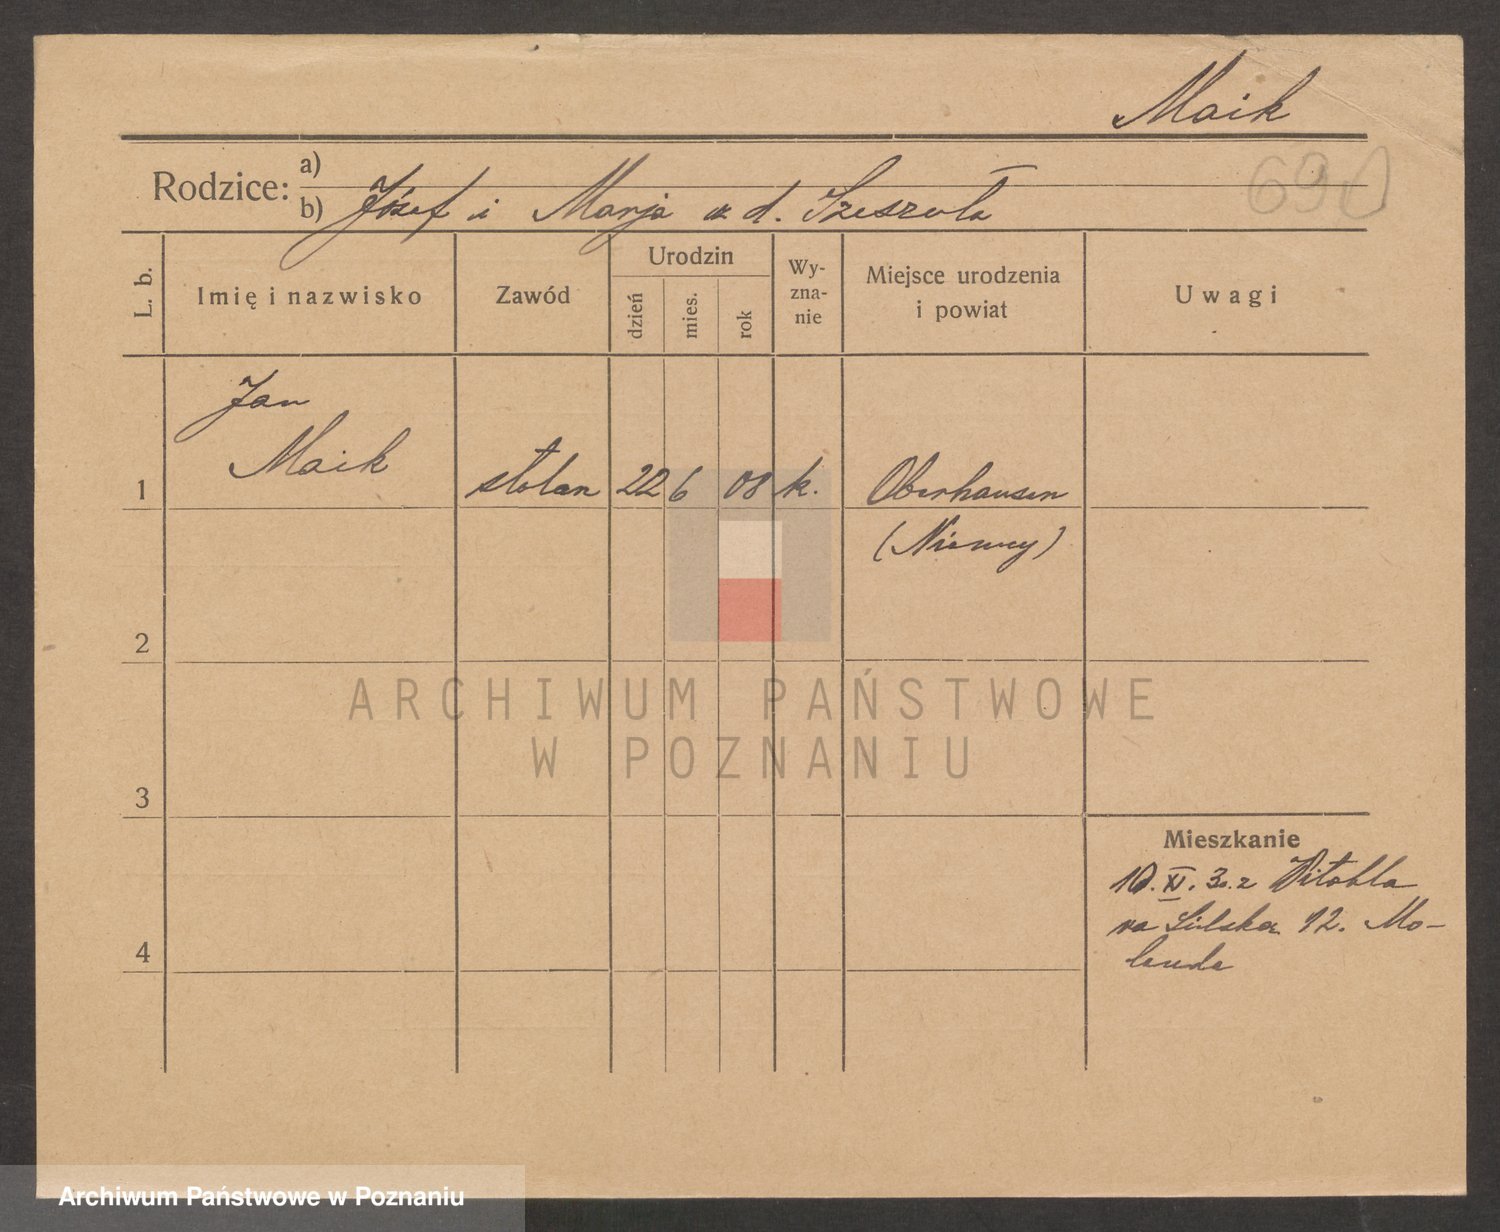 Maik
Rodzice:
a)
b) Józef i Marja u d. Szeszuła
690
L. b.
Imię i nazwisko
Zawód
Urodzin
dzień
mies.
rok
Wy-
zna-
nie
Miejsce urodzenia
i powiat
Uwagi
Jan
Maik
1
stolarz
22
6
08
k.
Oberhausen
(Niemcy)
2
3
4
Mieszkanie
10. XI. 30. z
12. Mo-
lenda
ARCHIWUM PAŃSTWOWE
W POZNANIU
Archiwum Państwowe w Poznaniu